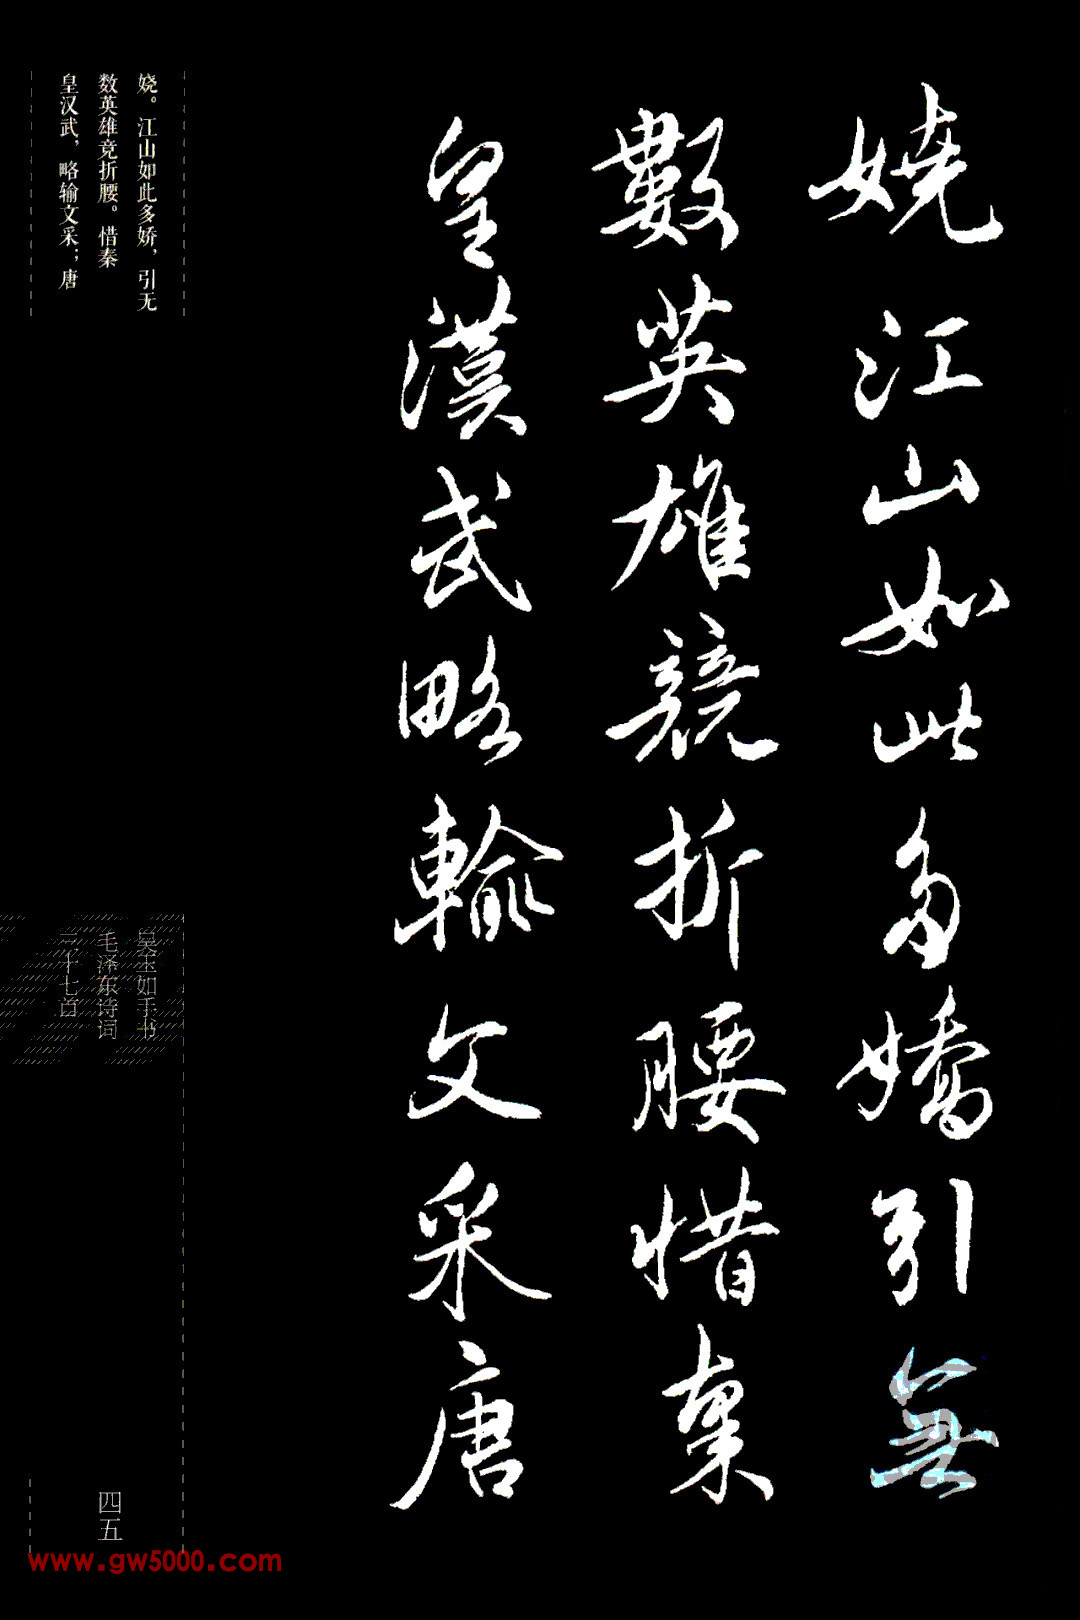 娆江山如此多嬌引無
數英雄競折腰惜秦
皇漢武略輸文采唐
娆。江山如此多娇，引无
数英雄竞折腰。惜秦
皇汉武，略输文采；唐
吴玉如手书
毛泽东诗词
三十七首
四五
www.gw5000.com